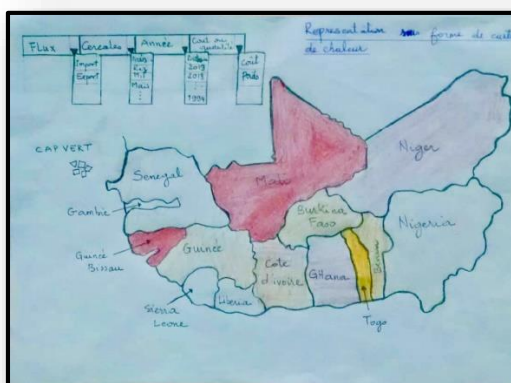 Représentation sous forme de carte
de chaleur
Flux
Céréales
Année
Coût ou
quantité
Import
Export
Maïs
2019
1994
Coût
Poids
CAP VERT
Sénégal
Gambie
Guinée
Bissau
Guinée
Sierra
Leone
Liberia
Mali
Burkina
Faso
Côte
d'ivoire
GHana
Togo
Benin
Niger
Nigeria